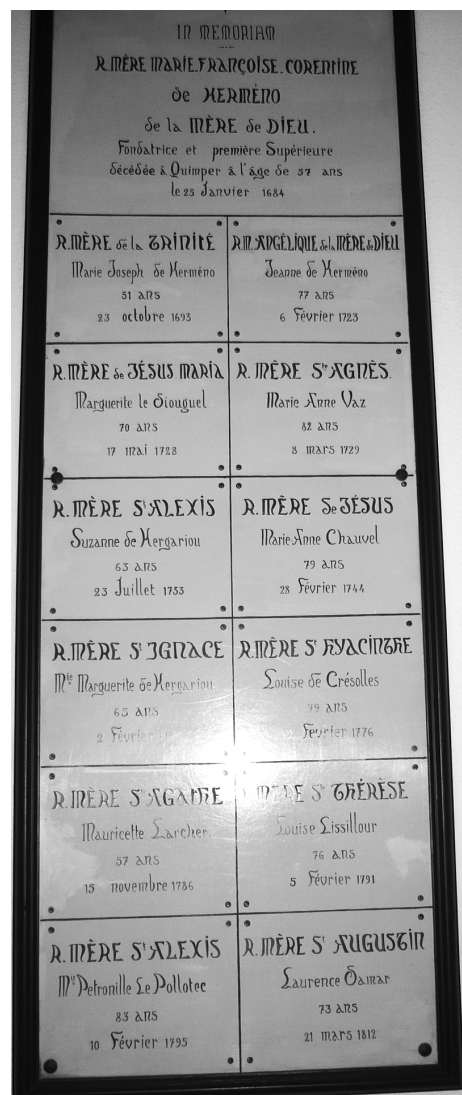 IN MEMORIAM
R. MÈRE MARIE. FRANÇOISE. CORENTINE
de HERMÉNO
de la MÈRE de DIEU.
Fondatrice et première Supérieure
décédée à Quimper à l'âge de 57 ans
le 25 Janvier 1684
R. MÈRE de la TRINITÉ
Marie Joseph de Herméno
51 ans
23 octobre 1693
R. M. ANGÉLIQUE de la MÈRE de DIEU
Jeanne de Herméno
77 ans
6 Février 1723
R. MÈRE de JÉSUS MARIA
Marguerite le Diouguel
70 ans
17 mai 1728
R. MÈRE Ste AGNÈS.
Marie Anne Vaz
82 ans
8 mars 1729
R. MÈRE St ALEXIS
Suzanne de Kergariou
63 ans
23 Juillet 1733
R. MÈRE De JÉSUS
Marie-Anne Chauvel
79 ans
28 Février 1744
R. MÈRE St IGNACE
Mie Marguerite de Kergariou
65 ans
2 Février
R. MÈRE St HYACINTHE
Louise de Crésolles
79 ans
Février 1776
R. MÈRE St AGATHE
Mauricette Larcher
57 ans
15 novembre 1786
MÈRE St THÉRÈSE
Louise Lissillour
76 ans
5 Février 1791
R. MÈRE St ALEXIS
Mie Petronille Le Pollotec
83 ans
10 Février 1795
R. MÈRE St AUGUSTIN
Laurence Damar
73 ans
21 mars 1812